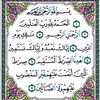 بِسْمِ اللَّهِ الرَّحْمَٰنِ الرَّحِيمِ
الْحَمْدُ لِلَّهِ رَبِّ الْعَالَمِينَ
الرَّحْمَٰنِ الرَّحِيمِ مَالِكِ يَوْمِ
الدِّينِ إِيَّاكَ نَعْبُدُ وَإِيَّاكَ نَسْتَعِينُ
اهْدِنَا الصِّرَاطَ الْمُسْتَقِيمَ صِرَاطَ
الَّذِينَ أَنْعَمْتَ عَلَيْهِمْ غَيْرِ الْمَغْضُوبِ
عَلَيْهِمْ وَلَا الضَّالِّينَ